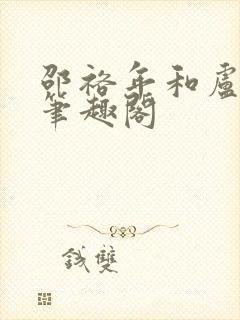 邵裕年和盧
筆趣閣
錢雙